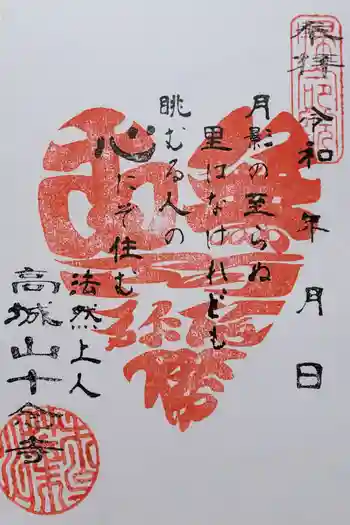 奉拝
令和 年 月 日
月影の至らぬ
里はなけれども
眺むる人の
心にぞ住む
法然上人
高城山十念寺
南無阿弥陀佛